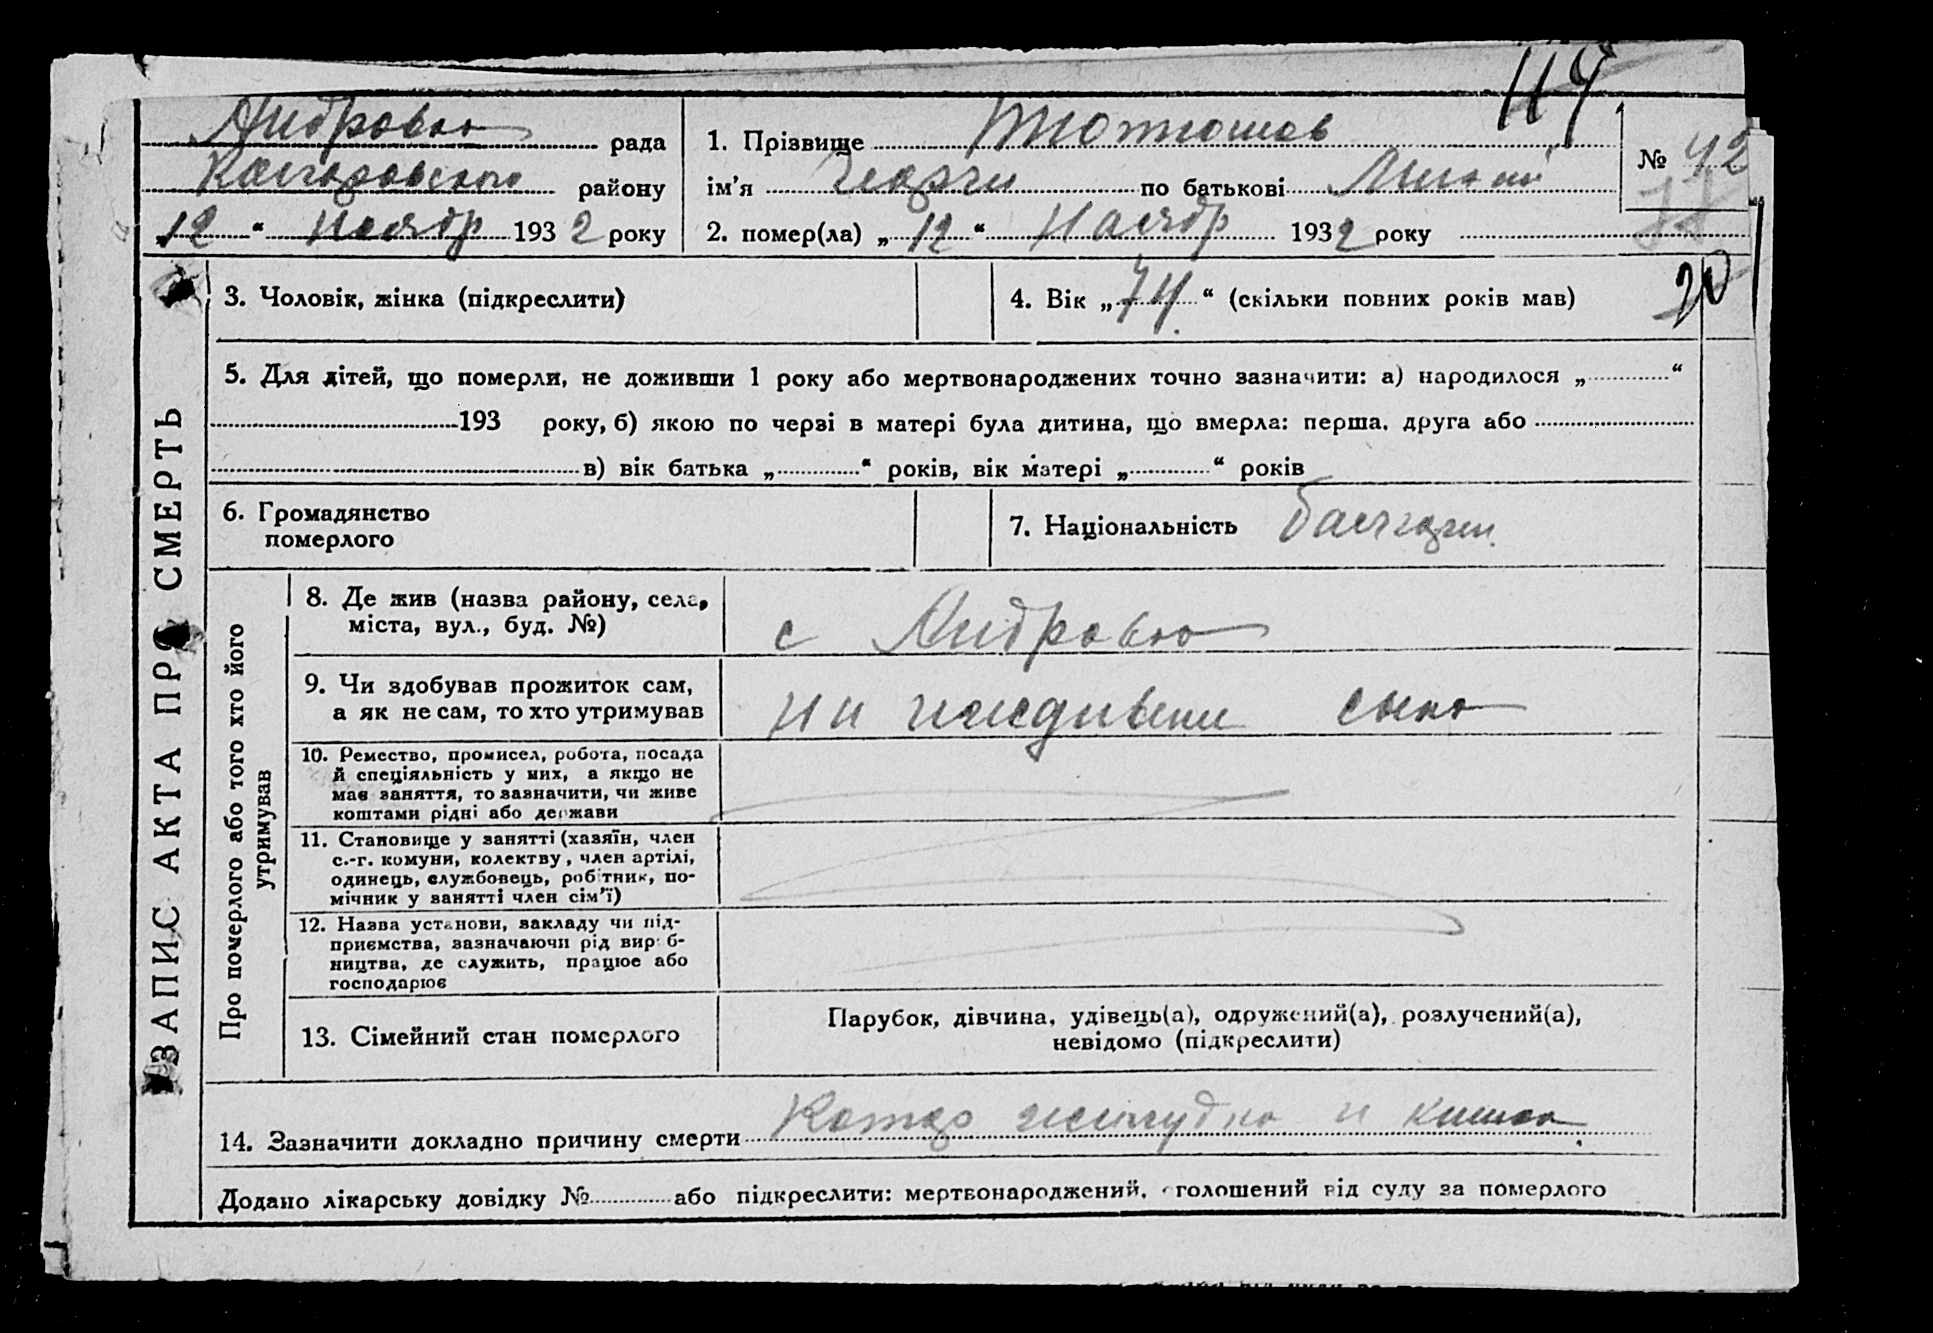 114
Андровка рада
Коларовского району
„12“ Ноябр 1932 року
1. Прізвище Тютюшов
ім’я Георги по батькові
2. помер(ла) „12“ Ноябр 1932 року
№ 42
20
ЗАПИС АКТА ПРО СМЕРТЬ
3. Чоловік, жінка (підкреслити)
4. Вік „74“ (скільки повних років мав)
5. Для дітей, що померли, не доживши 1 року або мертвонароджених точно зазначити: а) народилося „ “
193 року, б) якою по черзі в матері була дитина, що вмерла: перша, друга або
в) вік батька „ “ років, вік матері „ “ років
6. Громадянство
померлого
7. Національність болгарин.
Про померлого або того хто його
утримував
8. Де жив (назва району, села,
міста, вул., буд. №)
с Андровка
9. Чи здобував прожиток сам,
а як не сам, то хто утримував
На иждивени сына
10. Ремество, промисел, робота, посада
й спеціяльність у них, а якщо не
має заняття, то зазначити, чи живе
коштами рідні або держави
11. Становище у занятті (хазяїн, член
с.-г. комуни, колектву, член артілі,
одинець, службовець, робітник, по-
мічник у занятті член сім’ї)
12. Назва установи, закладу чи під-
приємства, зазначаючи рід вироб-
ництва, де служить, працює або
господарює
13. Сімейний стан померлого
Парубок, дівчина, удівець(а), одружений(а), розлучений(а),
невідомо (підкреслити)
14. Зазначити докладно причину смерти Катар желудка и кишок.
Додано лікарську довідку № або підкреслити: мертвонароджений, оголошений від суду за померлого